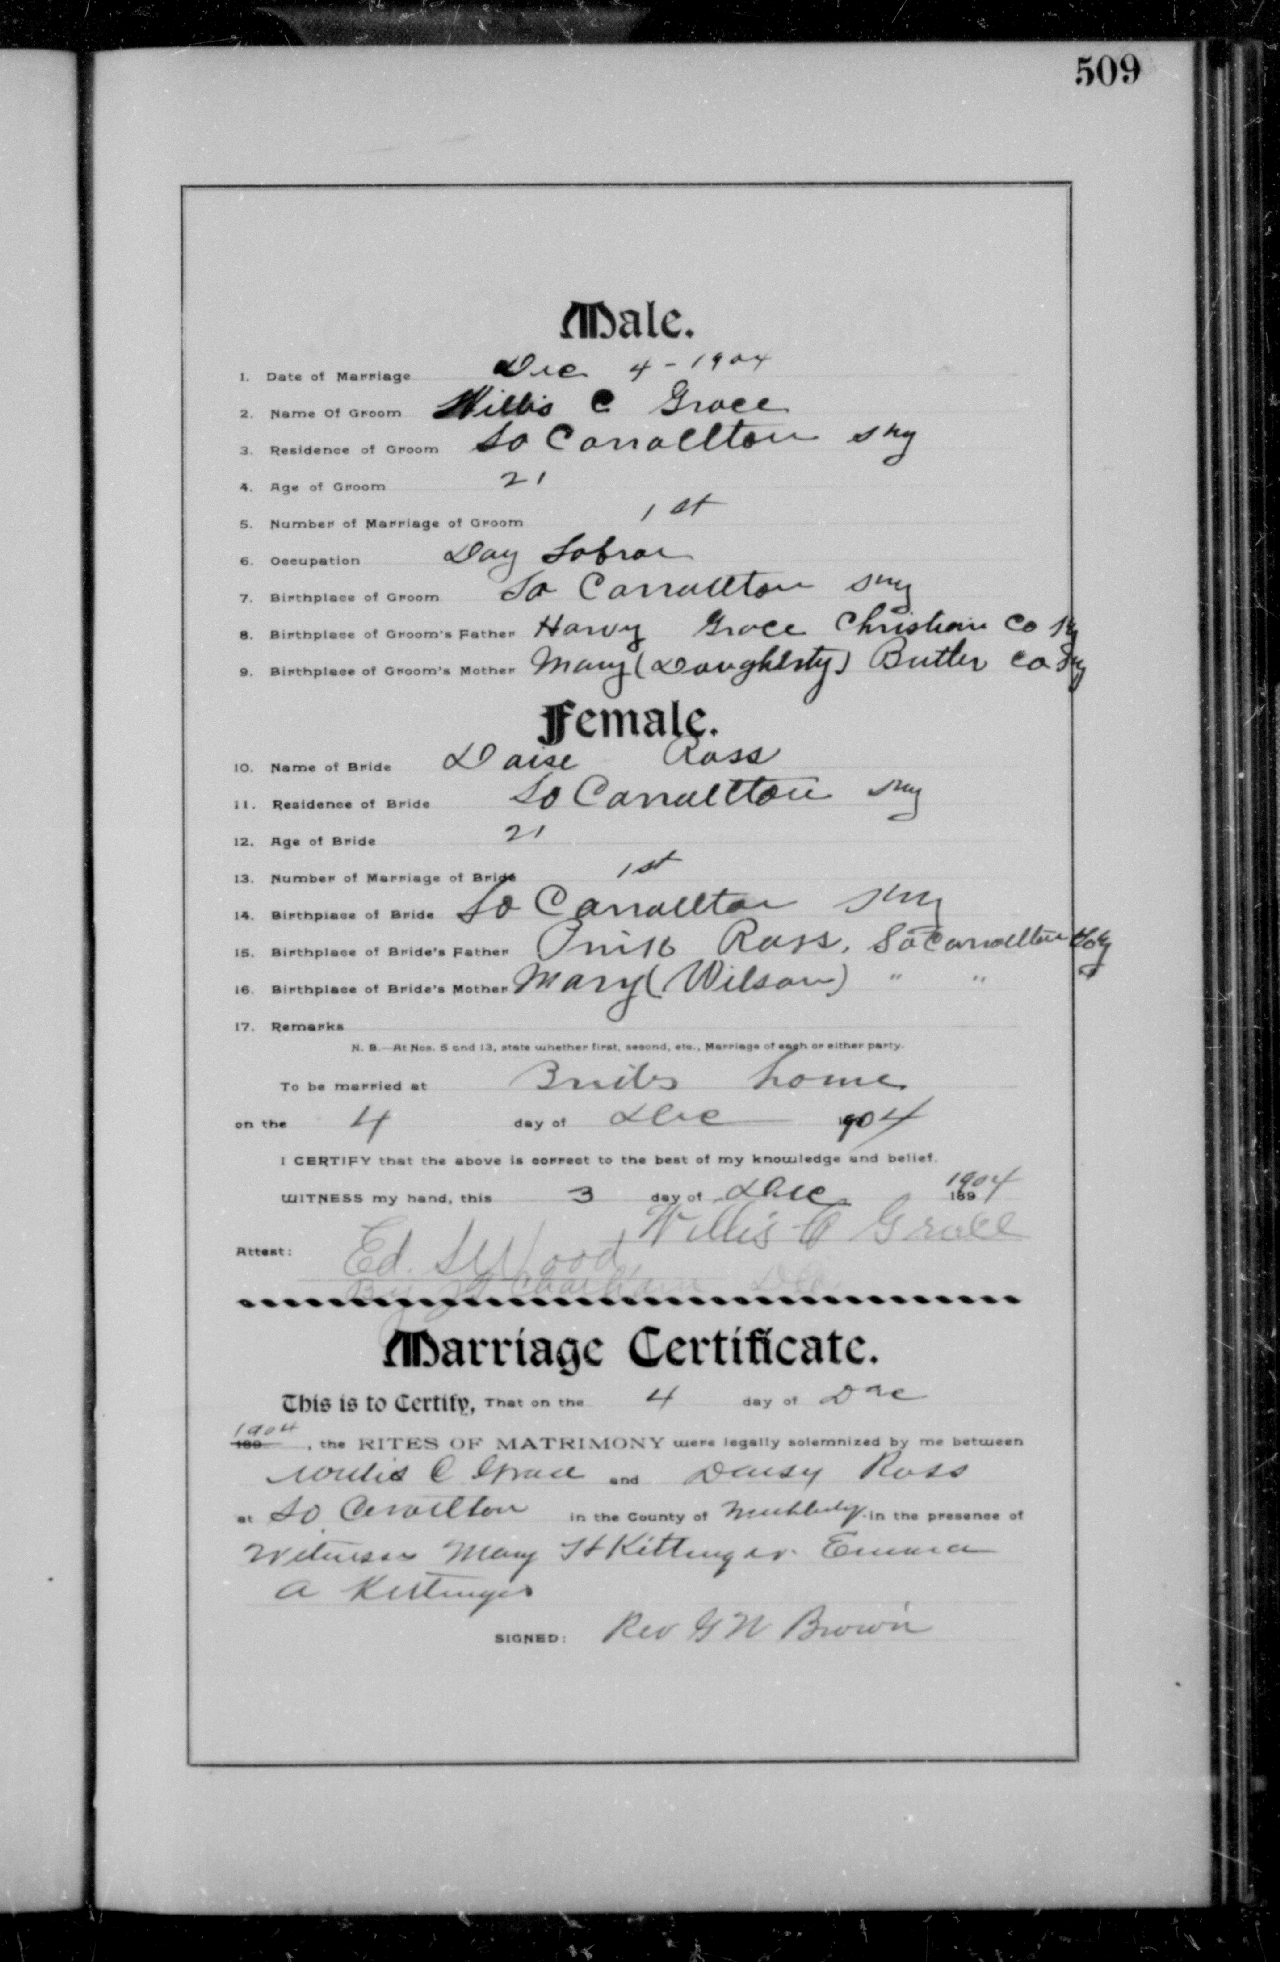 509
Male.
1. Date of Marriage Dec 4 - 1904
2. Name Of Groom Willis C Grace
3. Residence of Groom So Carrollton Ky
4. Age of Groom 21
5. Number of Marriage of Groom 1st
6. Occupation Day Labror
7. Birthplace of Groom So Carrollton Ky
8. Birthplace of Groom's Father Harvy Grace Christian Co Ky
9. Birthplace of Groom's Mother Mary (Daugherty) Butler Co Ky
Female.
10. Name of Bride Daise Ross
11. Residence of Bride So Carrollton Ky
12. Age of Bride 21
13. Number of Marriage of Bride 1st
14. Birthplace of Bride So Carrollton Ky
15. Birthplace of Bride's Father Ross, So Carrollton Ky
16. Birthplace of Bride's Mother Mary (Wilson) " "
17. Remarks
N. B.—At Nos. 5 and 13, state whether first, second, etc., Marriage of each or either party.
To be married at Brides home
on the 4 day of Dec 1904
I CERTIFY that the above is correct to the best of my knowledge and belief.
WITNESS my hand, this 3 day of Dec 1904
189
Willis C Grace
Attest: Ed. S Wood
By
Marriage Certificate.
This is to Certify, That on the 4 day of Dec
1904
189 , the RITES OF MATRIMONY were legally solemnized by me between
Willis C Grace and Daisy Ross
at So Carrollton in the County of in the presence of
Witnesses Mary H Kittinger Emma
A Kittinger
SIGNED: Rev G W Brown